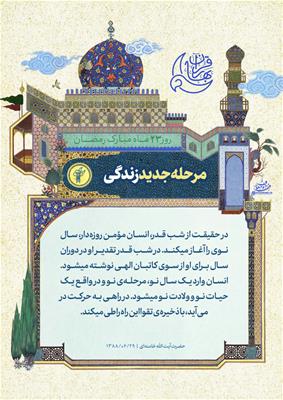 بهار قرآن
روز ۲۳ ماه مبارک رمضان
مرحله جدید زندگی
در حقیقت از شب قدر، انسان مؤمن روزه‌دار، سال
نوی را آغاز میکند. در شب قدر تقدیر او در دوران
سال برای او از سوی کاتبان الهی نوشته میشود.
انسان وارد یک سال نو، مرحله‌ی نو و در واقع یک
حیات نو و ولادت نو میشود. در راهی به حرکت در
می‌آید، با ذخیره‌ی تقوا این راه را طی میکند.
حضرت آیت الله خامنه‌ای | ۱۳۸۸/۰۶/۲۹